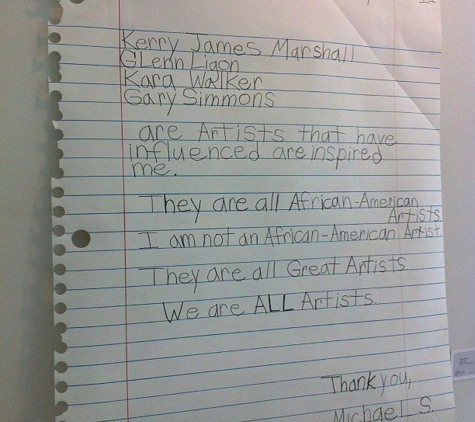 Kerry James Marshall
GLenn Ligon
Kara Walker
Gary Simmons
are Artists that have
influenced are inspired
me.
They are all African-American
Artists
I am not an African-American Artist
They are all Great Artists.
We are ALL Artists.
Thank you,
MichaeL S.